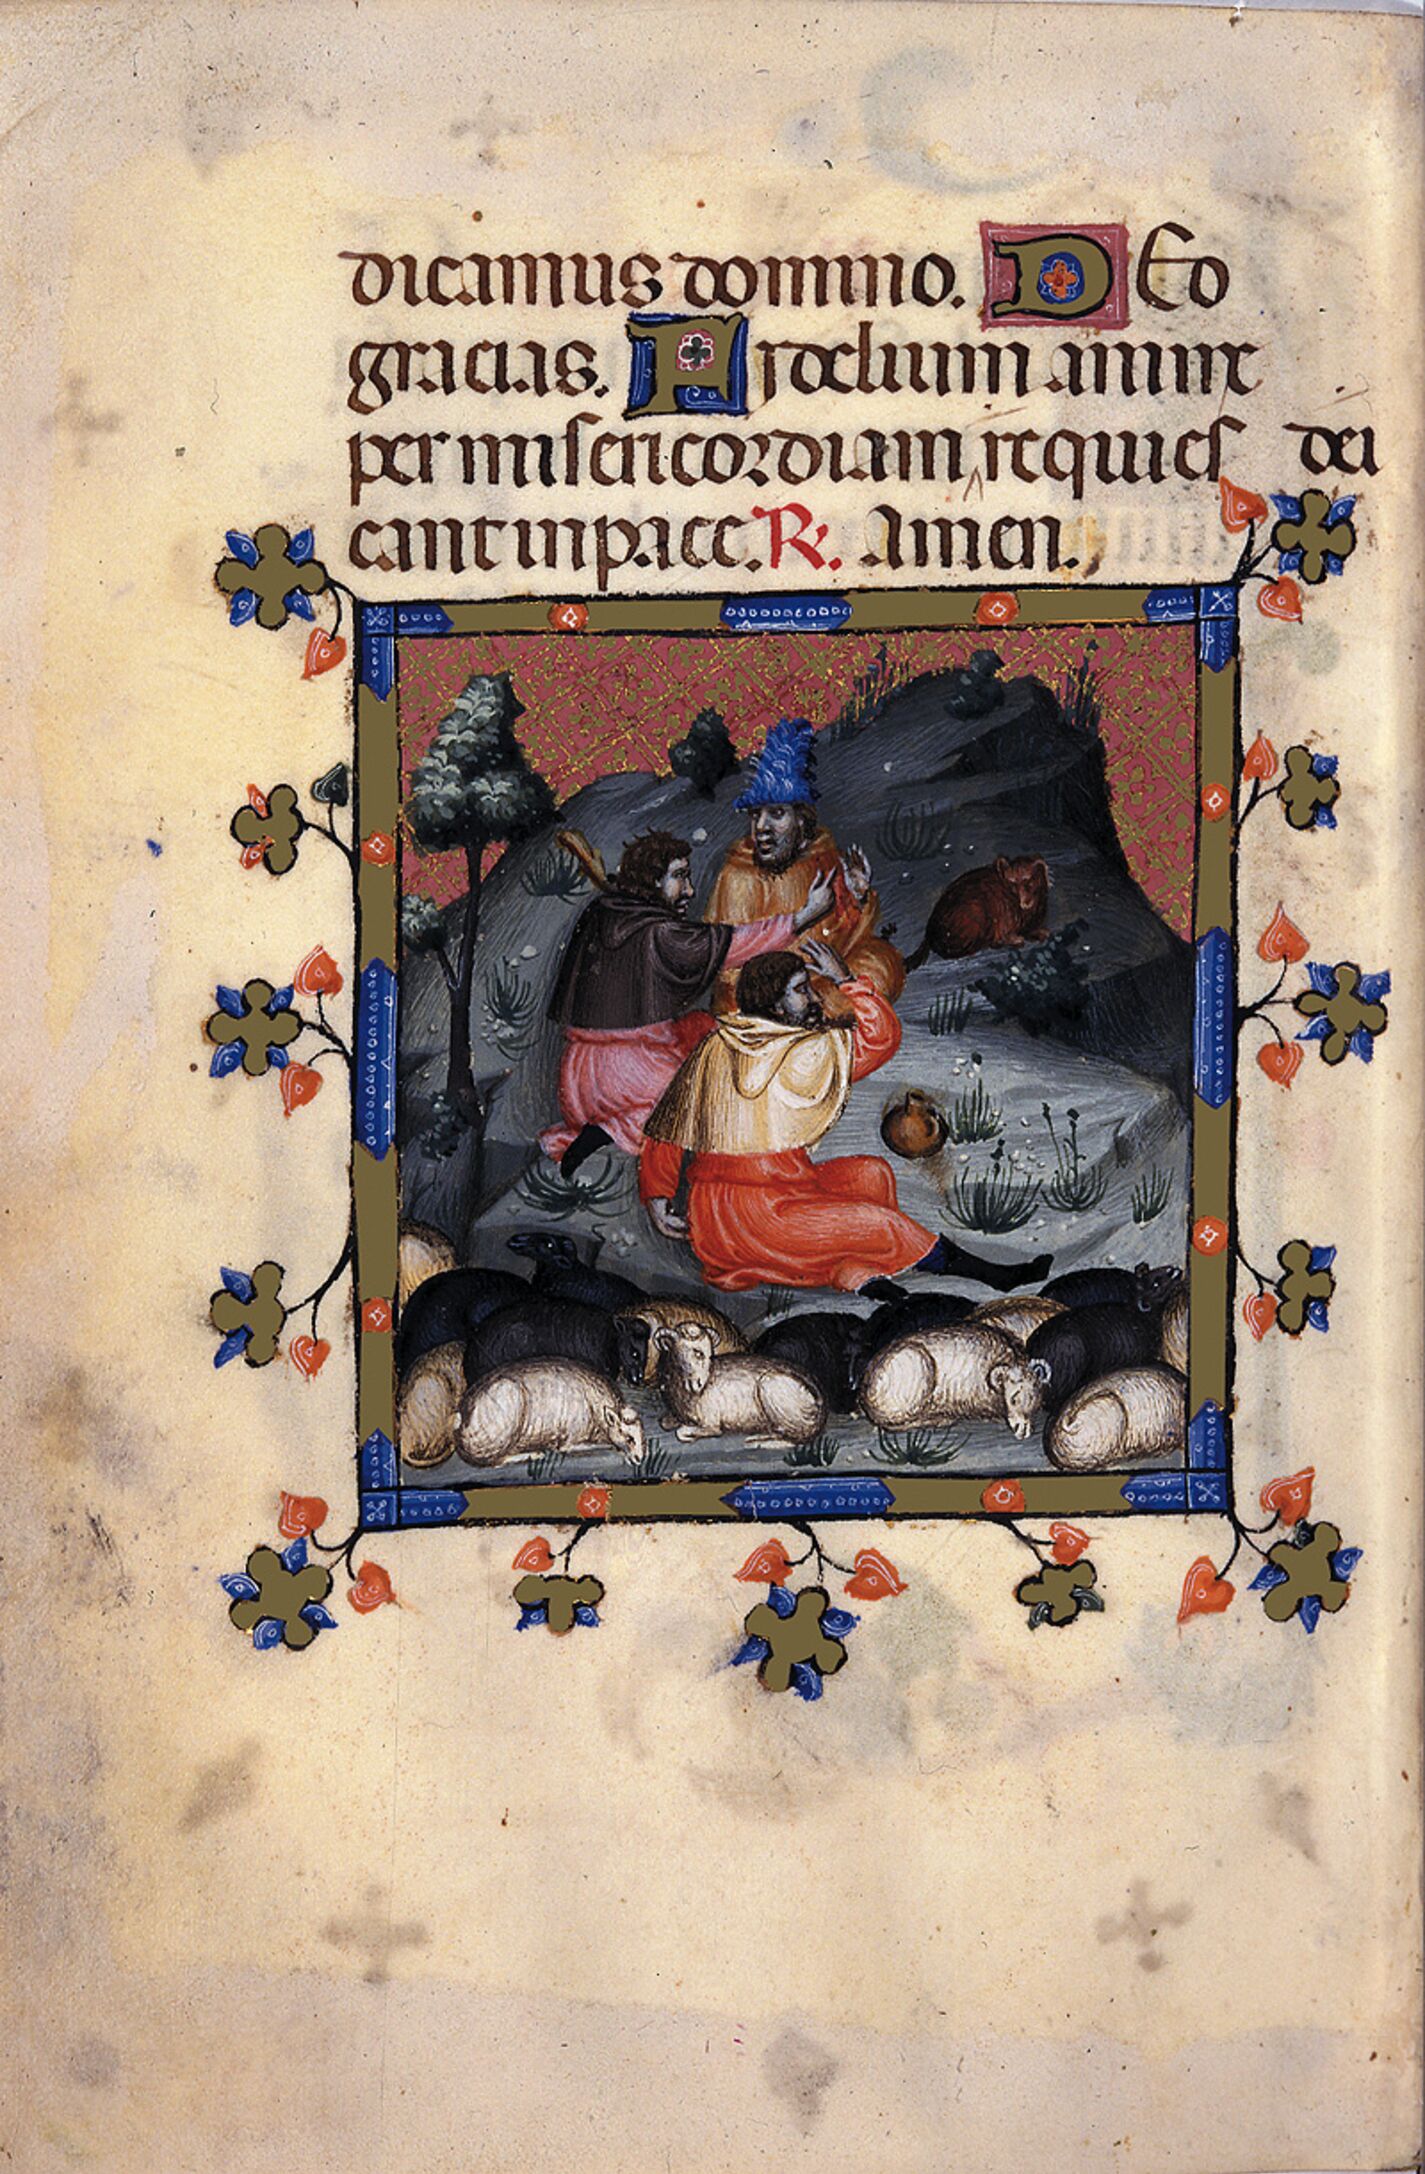 dicamus domino. DEo
gracias. Fidelium anime
per misericordiam requies dei
cant in pace. R. Amen.